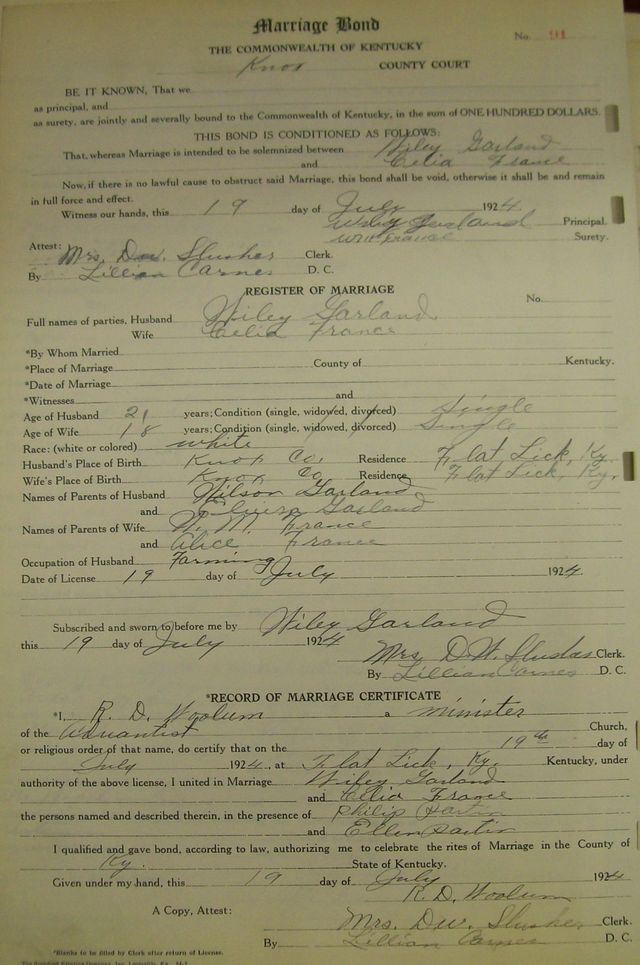 Marriage Bond
No. 91
THE COMMONWEALTH OF KENTUCKY
Knox COUNTY COURT
BE IT KNOWN, That we
as principal, and
as surety, are jointly and severally bound to the Commonwealth of Kentucky, in the sum of ONE HUNDRED DOLLARS.
THIS BOND IS CONDITIONED AS FOLLOWS:
That, whereas Marriage is intended to be solemnized between Wiley Garland
and Celia France
Now, if there is no lawful cause to obstruct said Marriage, this bond shall be void, otherwise it shall be and remain
in full force and effect.
Witness our hands, this 19 day of July 1924
Wiley Garland Principal.
Wm France Surety.
Attest:
Mrs. Dw. Slusher Clerk.
By Lillian Carnes D. C.
REGISTER OF MARRIAGE
No.
Full names of parties, Husband Wiley Garland
Wife Celia France
*By Whom Married
*Place of Marriage County of Kentucky.
*Date of Marriage
*Witnesses and
Age of Husband 21 years; Condition (single, widowed, divorced) Single
Age of Wife 18 years; Condition (single, widowed, divorced) Single
Race: (white or colored) white
Husband's Place of Birth Knox Co. Residence Flat Lick, Ky.
Wife's Place of Birth Knox Co Residence Flat Lick, Ky.
Names of Parents of Husband Wilson Garland
and Garland
Names of Parents of Wife W. M. France
and Alice France
Occupation of Husband Farming
Date of License 19 day of July 1924
Subscribed and sworn to before me by Wiley Garland
this 19 day of July 1924
Mrs. D. W. Clerk.
By Lillian Carnes D. C.
*RECORD OF MARRIAGE CERTIFICATE
*I, R. D. Woolum a minister
of the Church,
or religious order of that name, do certify that on the 19th day of
July 1924, at Flat Lick, Ky. Kentucky, under
authority of the above license, I united in Marriage Wiley Garland
and Celia France
the persons named and described therein, in the presence of Philip
and Ellen
I qualified and gave bond, according to law, authorizing me to celebrate the rites of Marriage in the County of
Ky. State of Kentucky.
Given under my hand, this 19 day of July 1924
R. D. Woolum
A Copy, Attest:
Mrs. Dw. Slusher Clerk.
By Lillian Carnes D. C.
*Blanks to be filled by Clerk after return of License.